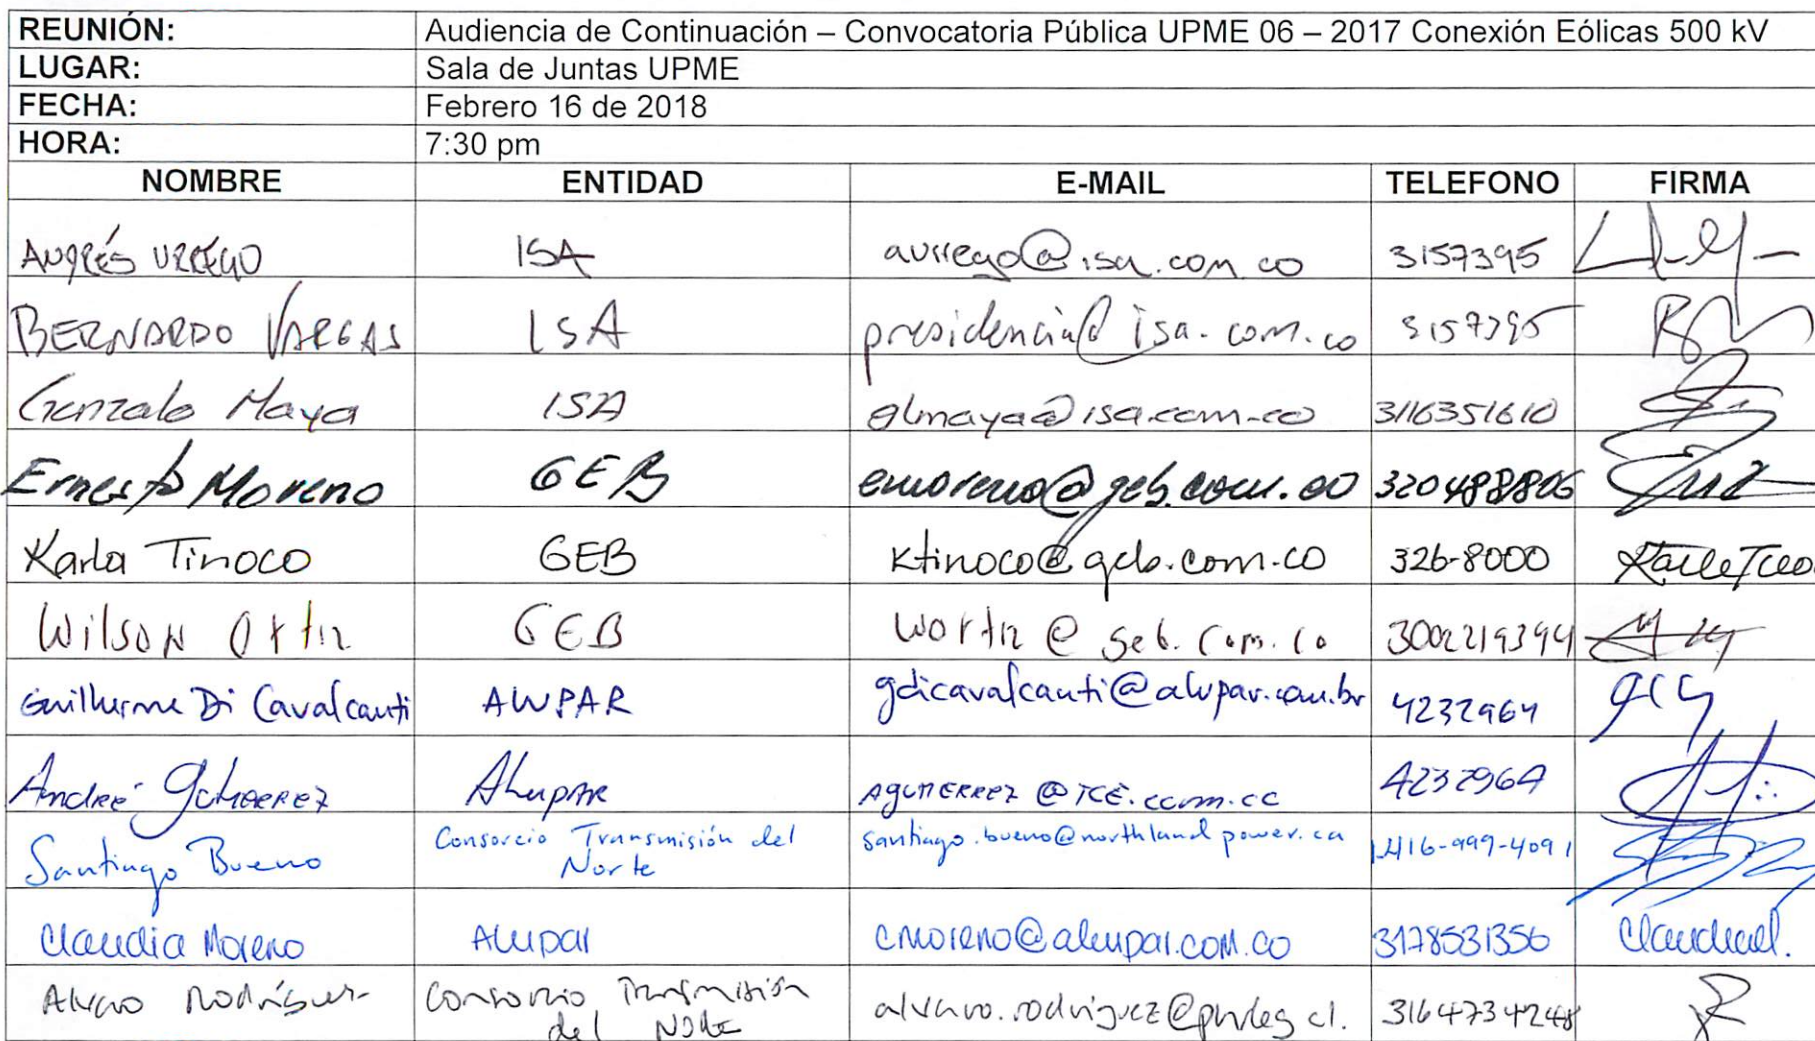 REUNIÓN: Audiencia de Continuación – Convocatoria Pública UPME 06 – 2017 Conexión Eólicas 500 kV
LUGAR: Sala de Juntas UPME
FECHA: Febrero 16 de 2018
HORA: 7:30 pm
NOMBRE ENTIDAD E-MAIL TELEFONO FIRMA
ANDRÉS URREGO ISA aurrego@isa.com.co 3157395
BERNARDO VARGAS ISA presidencia@isa.com.co 3157395
Gonzalo Maya ISA glmaya@isa.com.co 3116351610
Ernesto Moreno GEB emoreno@geb.com.co 3204888806
Karla Tinoco GEB ktinoco@geb.com.co 326-8000
Wilson Ortiz GEB wortiz@geb.com.co 3002219394
Guilherme Di Cavalcanti ALUPAR gdicavalcanti@alupar.com.br 4232964
André Gutierrez Alupar AGUTIERREZ@TCE.com.co 4232964
Santiago Bueno Consorcio Transmisión del santiago.bueno@northlandpower.ca 1-416-999-4091
Norte
Claudia Moreno Alupar cmoreno@alupar.com.co 3178531356 ClaudiaM.
Alvaro Rodríguez Consorcio Transmisión 3164734248
del Norte